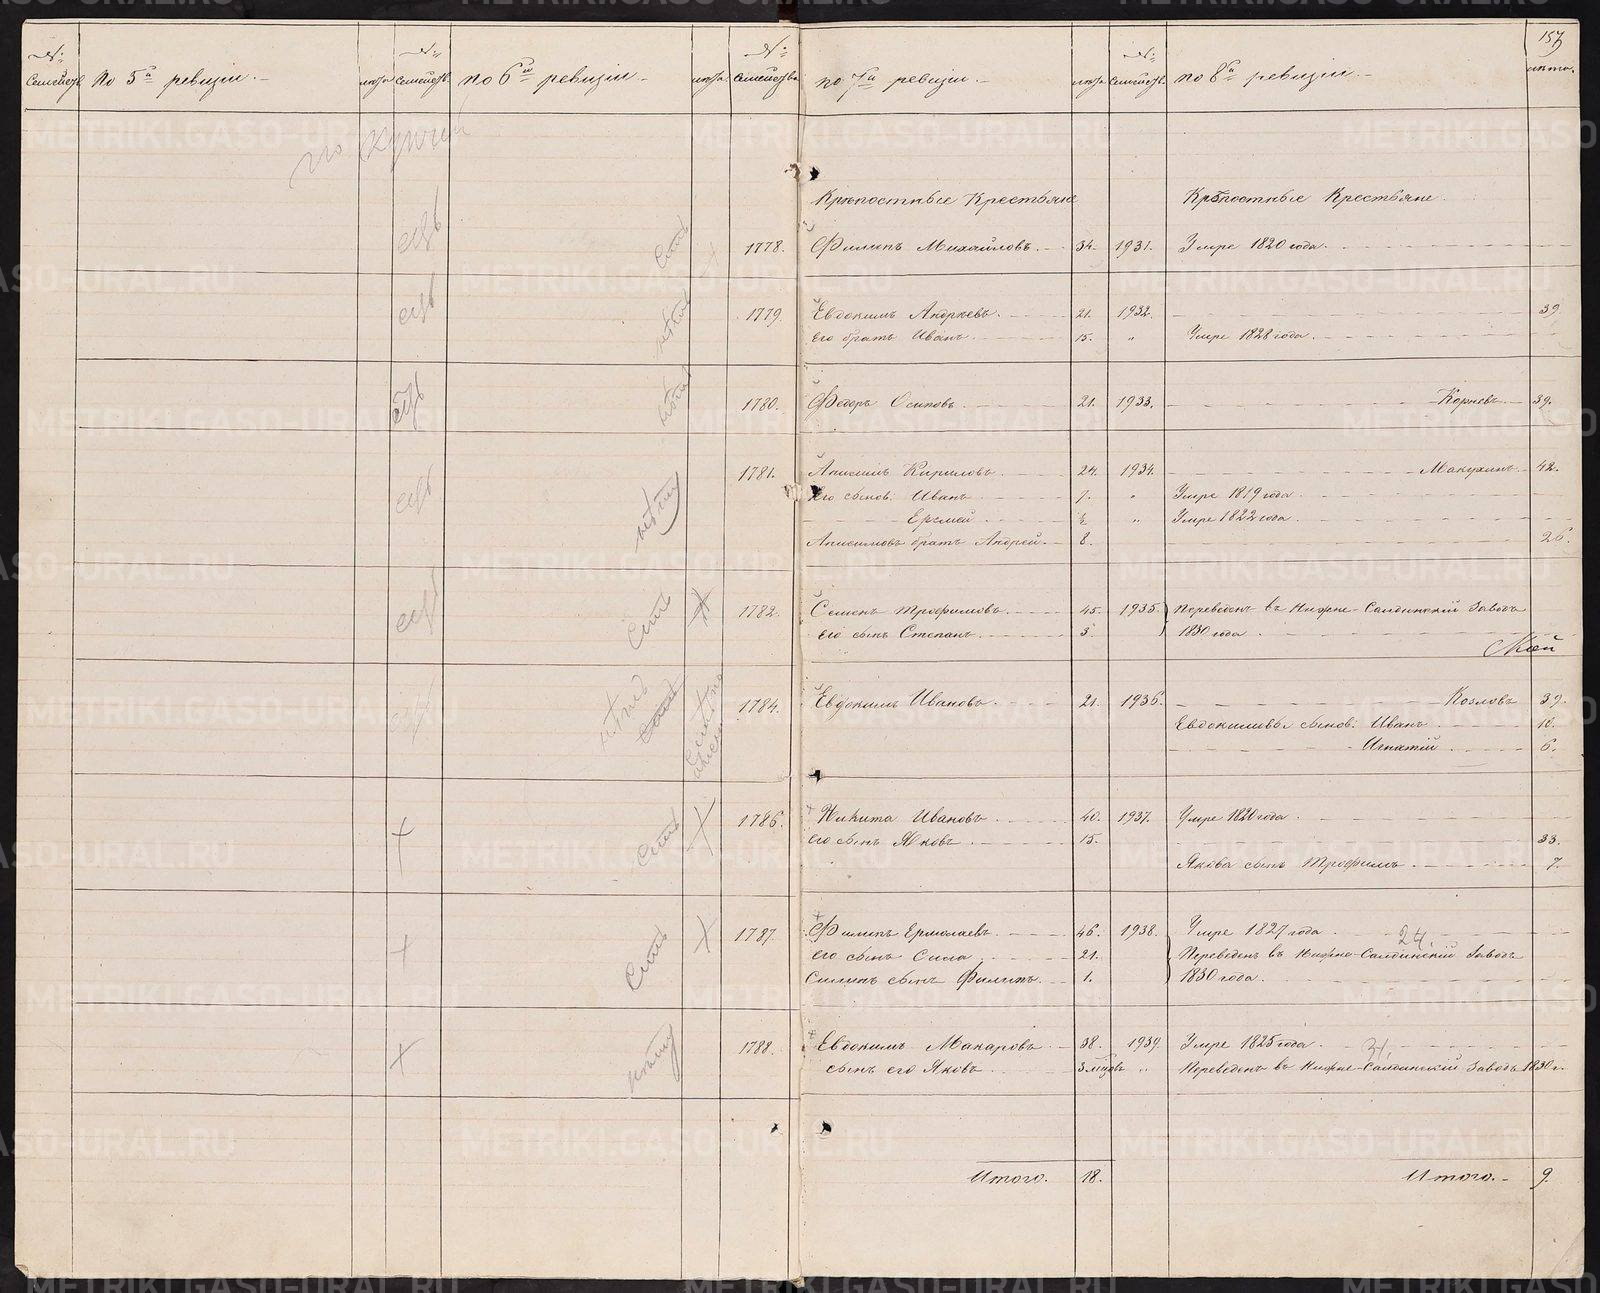 157
№: Семейств По 5й ревизіи. лѣта №: Семейств. по 6й ревизіи лѣта №: Семейства по 7й ревизіи. лѣта №: Семейств. по 8й ревизіи. лѣта.
Крѣпостные Крестьяне Крѣпостные Крестьяне.
1778. Филипъ Михайловъ. 34. 1931. Умре 1820 года.
1779. Евдокимъ Андреевъ. 21. 1932. 39
Его братъ Иванъ. 15. „ Умре 1828 года.
1780. Федоръ Осиповъ. 21. 1933. Корневъ 39.
1781. Анисимъ Кириловъ. 24. 1934. Макухинъ 42.
Его сынов. Иванъ 7. „ Умре 1819 года.
Еремей ½ „ Умре 1822 года.
Анисимовъ братъ Андрей. 8. 26.
1782. Семенъ Трофимовъ. 45. 1935. Переведенъ въ Нижне-Салдинскій Заводъ
Его сынъ Степанъ. 3. 1830 года.
1784. Евдокимъ Ивановъ. 21. 1936. Козловъ 39.
Евдокимовы сынов. Иванъ 10.
Игнатій 6.
1786. Никита Ивановъ. 40. 1937. Умре 1820 года.
его сынъ Яковъ. 15. 33.
Якова сынъ Трофимъ. 7.
1787. Филипъ Ермолаевъ. 46. 1938. Умре 1827 года. 24.
его сынъ Сила 21. Переведенъ въ Нижне-Салдинскій Заводъ
Силинъ сынъ Филипъ. 1. 1830 года.
1788. Евдокимъ Макаровъ 38. 1939. Умре 1825 года. 31.
сынъ его Яковъ 3 мѣсяцовъ „ Переведенъ въ Нижне-Салдинскій Заводъ 1830 г.
Итого. 18. Итого. 9.
METRIKI.GASO-URAL.RU